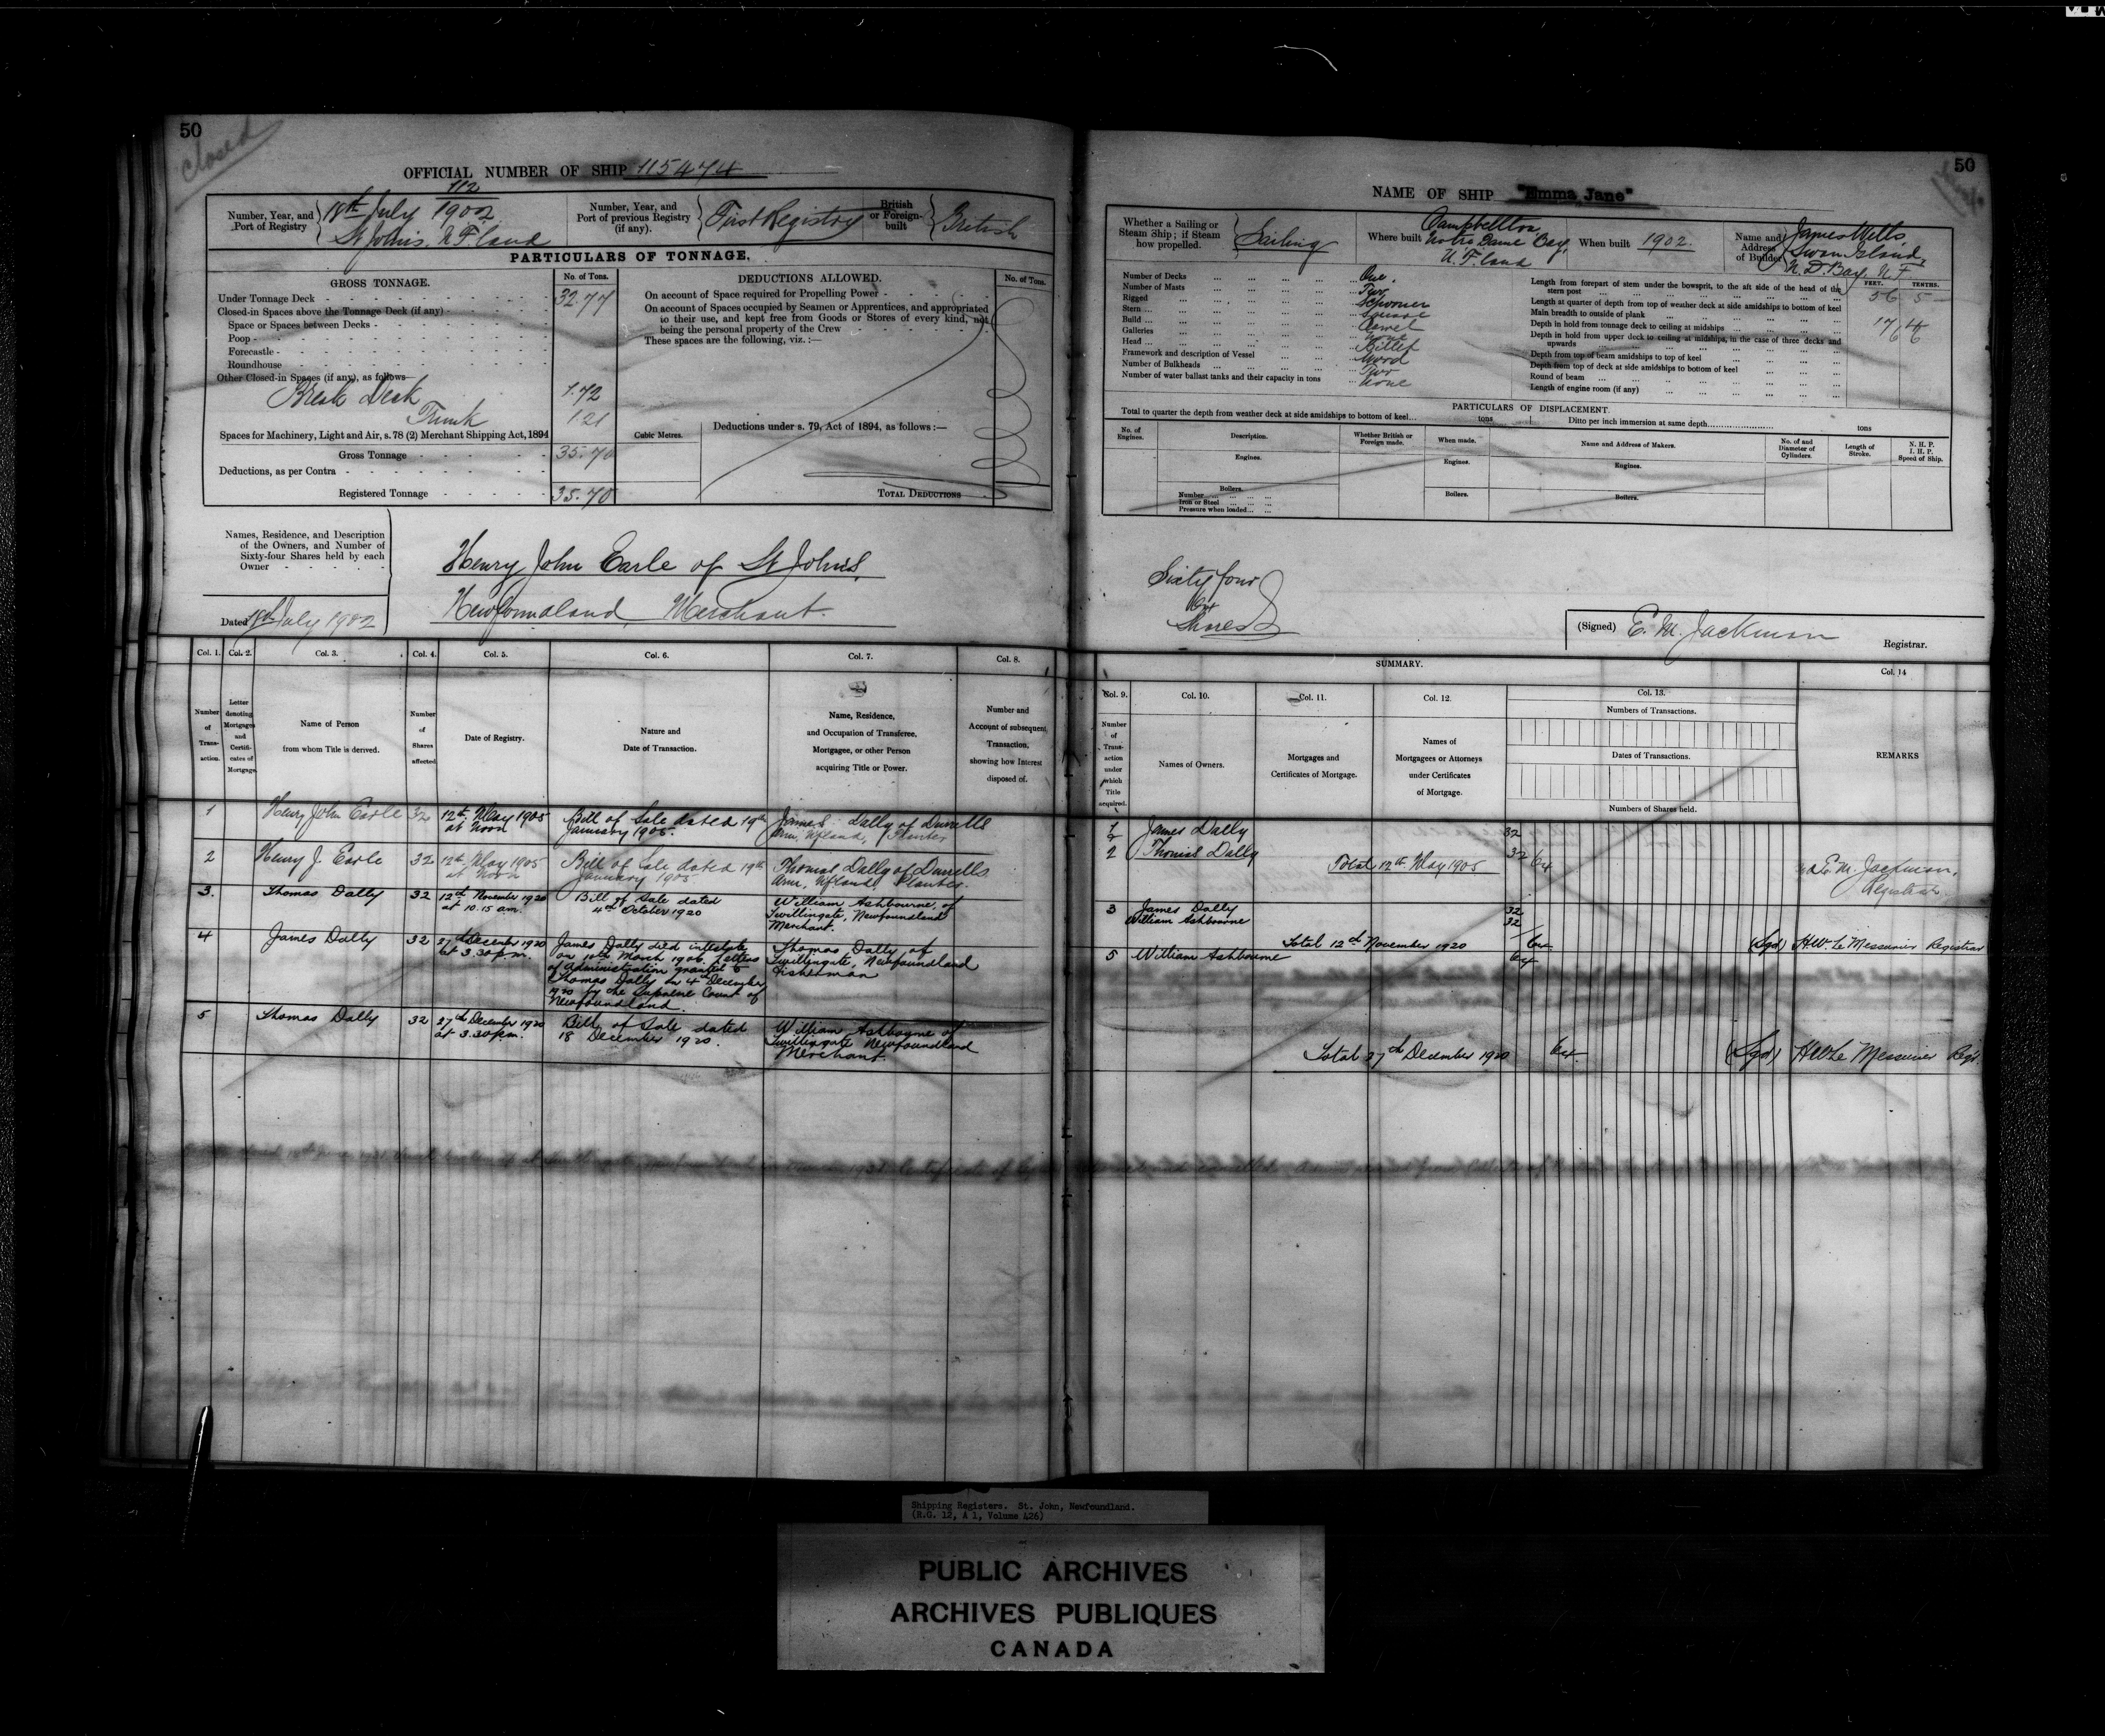 50
Closed
OFFICIAL NUMBER OF SHIP 115474
Number, Year, and Port of Registry
112
18th July 1902
St John's, N F land
Number, Year, and Port of previous Registry (if any).
First Registry
British or Foreign-built
British
PARTICULARS OF TONNAGE.
GROSS TONNAGE.
No. of Tons.
Under Tonnage Deck 32.77
Closed-in Spaces above the Tonnage Deck (if any)
Space or Spaces between Decks
Poop
Forecastle
Roundhouse
Other Closed-in Spaces (if any), as follows
Break Deck 1.72
Trunk 1.21
Spaces for Machinery, Light and Air, s. 78 (2) Merchant Shipping Act, 1894
Gross Tonnage 35.70
Deductions, as per Contra
Registered Tonnage 35.70
Cubic Metres.
DEDUCTIONS ALLOWED.
No. of Tons.
On account of Space required for Propelling Power
On account of Spaces occupied by Seamen or Apprentices, and appropriated
to their use, and kept free from Goods or Stores of every kind, not
being the personal property of the Crew
These spaces are the following, viz. :—
Deductions under s. 79, Act of 1894, as follows :—
TOTAL DEDUCTIONS
Names, Residence, and Description
of the Owners, and Number of
Sixty-four Shares held by each
Owner
Dated 18th July 1902
Henry John Earle of St John's,
Newfoundland, Merchant.
Col. 1. Col. 2. Col. 3. Col. 4. Col. 5. Col. 6. Col. 7. Col. 8.
Number of Transaction.
Letter denoting Mortgages and Certificates of Mortgage.
Name of Person from whom Title is derived.
Number of Shares affected.
Date of Registry.
Nature and Date of Transaction.
Name, Residence, and Occupation of Transferee, Mortgagee, or other Person acquiring Title or Power.
Number and Account of subsequent Transaction, showing how Interest disposed of.
1 Henry John Earle 32 12th May 1905 at Noon
Bill of Sale dated 19th January 1905.
James Dally of Durrells Arm, Nfland, Planter
2 Henry J. Earle 32 12th May 1905 at Noon
Bill of Sale dated 19th January 1905
Thomas Dally of Durrells Arm, Nfland. Planter.
3. Thomas Dally 32 12th November 1920 at 10.15 am.
Bill of Sale dated 4th October 1920
William Ashbourne, of Twillingate, Newfoundland Merchant.
4 James Dally 32 27th December 1920 at 3.30 p.m.
James Dally died intestate
on 10th March 1906. Letters
of Administration granted to
Thomas Dally on 4th December
1920 by the Supreme Court of
Newfoundland.
Thomas Dally of Twillingate, Newfoundland Fisherman
5 Thomas Dally 32 27th December 1920 at 3.30 p.m.
Bill of Sale dated 18 December 1920.
William Ashbourne of Twillingate Newfoundland Merchant.
50
NAME OF SHIP "Emma Jane"
Whether a Sailing or Steam Ship; if Steam how propelled.
Sailing
Where built
Campbellton, Notre Dame Bay, N. F. land
When built 1902.
Name and Address of Builder
James Wells, Swan Island, N. D. Bay. N F
Number of Decks One.
Number of Masts Two
Rigged Schooner
Stern Square
Build Carvel
Galleries None
Head Billet
Framework and description of Vessel Wood
Number of Bulkheads Two
Number of water ballast tanks and their capacity in tons None
FEET. TENTHS.
Length from forepart of stem under the bowsprit, to the aft side of the head of the stern post 56 5
Length at quarter of depth from top of weather deck at side amidships to bottom of keel
Main breadth to outside of plank 17 4
Depth in hold from tonnage deck to ceiling at midships 6 6
Depth in hold from upper deck to ceiling at midships, in the case of three decks and upwards
Depth from top of beam amidships to top of keel
Depth from top of deck at side amidships to bottom of keel
Round of beam
Length of engine room (if any)
PARTICULARS OF DISPLACEMENT.
Total to quarter the depth from weather deck at side amidships to bottom of keel tons
Ditto per inch immersion at same depth tons
No. of Engines.
Description.
Whether British or Foreign made.
When made.
Name and Address of Makers.
No. of and Diameter of Cylinders.
Length of Stroke.
N. H. P. I. H. P. Speed of Ship.
Engines. Engines. Engines.
Boilers. Boilers. Boilers.
Number
Iron or Steel
Pressure when loaded
Sixty four
Shares
(Signed) E. M. Jackman
Registrar.
SUMMARY.
Col. 9. Col. 10. Col. 11. Col. 12. Col. 13. Col. 14
Number of Transaction under which Title acquired.
Names of Owners.
Mortgages and Certificates of Mortgage.
Names of Mortgagees or Attorneys under Certificates of Mortgage.
Numbers of Transactions.
Dates of Transactions.
Numbers of Shares held.
REMARKS
1 James Dally 32
2 Thomas Dally 32 64
Total 12th May 1905
E. M. Jackman,
Registrar.
3 James Dally 32
William Ashbourne 32
Total 12th November 1920 64
(Sgd) H.W. Le Messurier Registrar
5 William Ashbourne 64
Total 27th December 1920 64
(Sgd) H W Le Messurier Regr
Shipping Registers. St. John, Newfoundland.
(R.G. 12, A 1, Volume 426)
PUBLIC ARCHIVES
ARCHIVES PUBLIQUES
CANADA